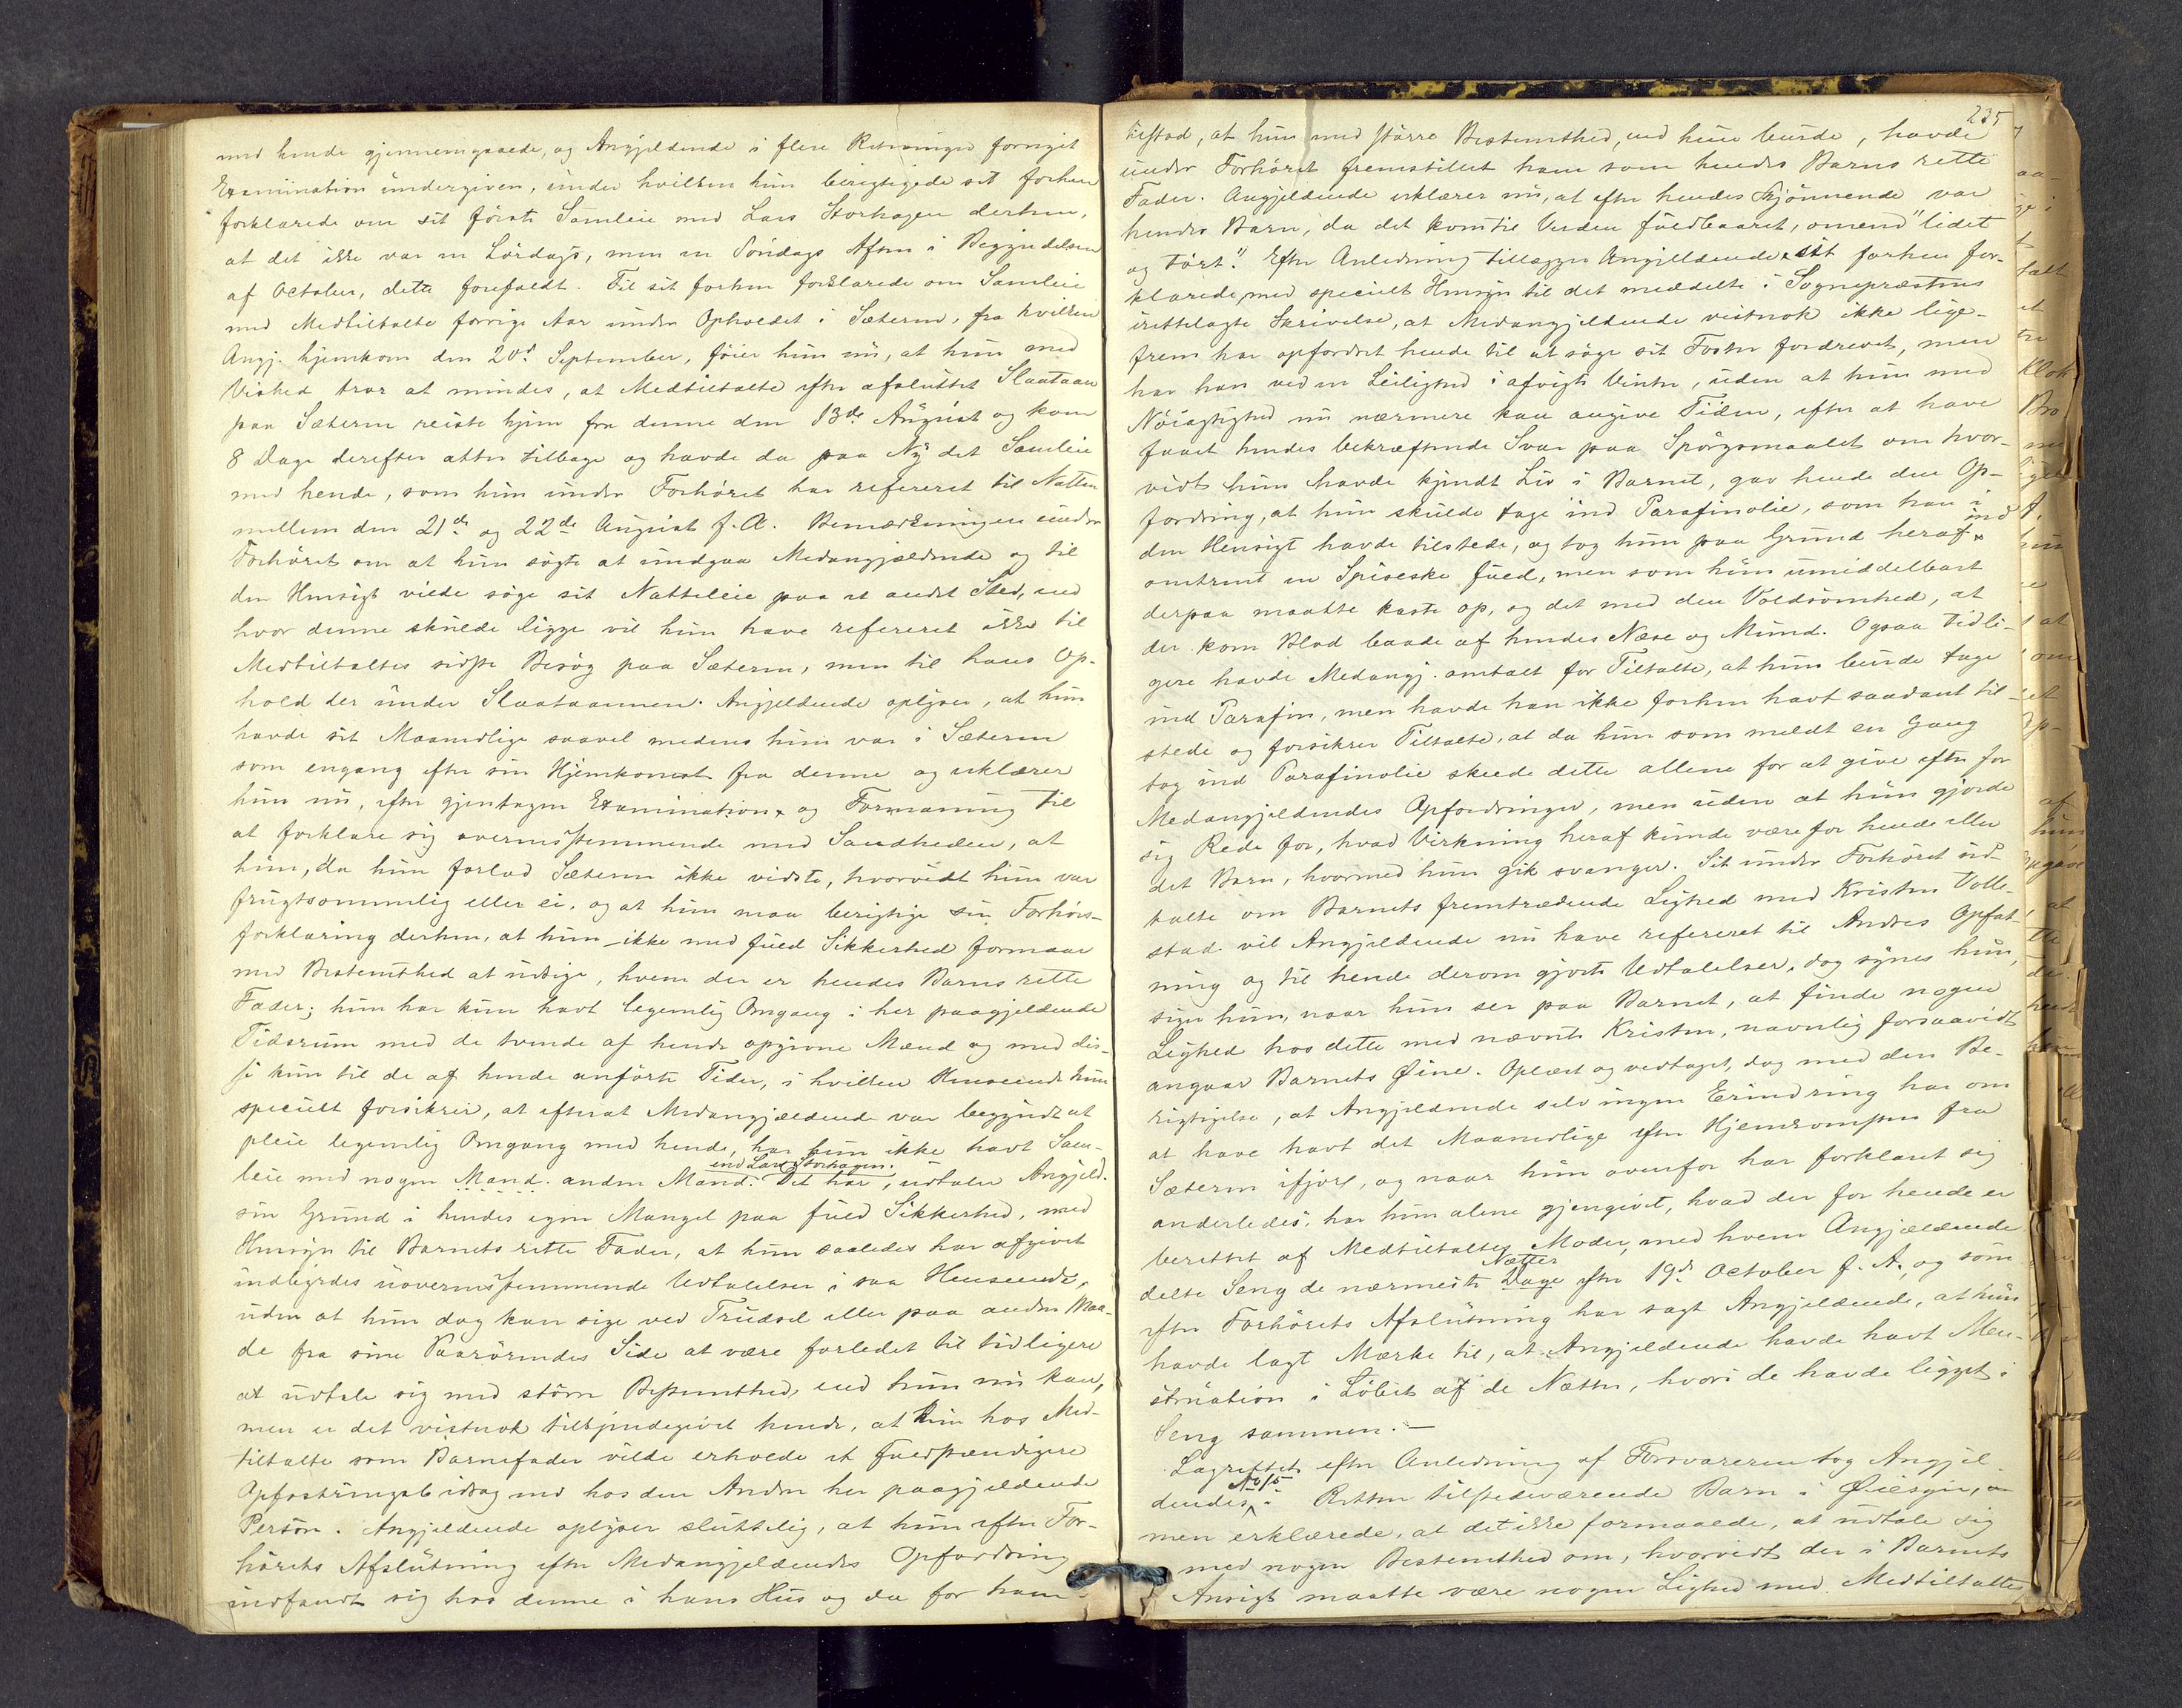 med hende gjennemgaaede, og Angjeldende i flere Retninger forøiget
Examination undergiven, under hvilken hun berigtigede sit forhen
forklarede om sit første Samleie med Lars Storhagen derhen,
at det ikke var en Lørdags, men en Søndags Aften i Begyndelsen
af October, dette forefaldt. Til sit forhen forklarede om Samleie
med Medtiltalte forrige Aar under Opholdet i Sæteren, fra hvilken
Angj. hjemkom den 20de September, føier hun nu, at hun med
Vished tror at mindes, at Medtiltalte efter afsluttet Slaataan
paa Sæteren reiste hjem fra denne den 13de August og kom
8 Dage derefter atter tilbage og havde da paa Ny det Samleie
med hende, som hun under Forhøret har refereret til Natten
mellem den 21de og 22de August f. A. Bemærkningen under
Forhøret om at hun søgte at undgaa Medangjældende og til
den Hensigt vilde søge sit Natteleie paa et andet Sted, end
hvor denne skulde ligge vil hun have refereret ikke til
Medtiltaltes sidste Besøg paa Sæteren, men til hans Op-
hold der under Slaataannen. Angjeldende oplyser, at hun
havde sit Maanedlige saavel medens hun var i Sæteren
som engang efter sin Hjemkomst fra denne og erklærer
hun nu, efter gjentagen Examination og Formaning til
at forklare sig overensstemmende med Sandheden, at
hun, da hun forlod Sæteren ikke vidste, hvorvidt hun var
frugtsommelig eller ei, og at hun maa berigtige sin Forhørs-
forklaring derhen, at hun ikke med fuld Sikkerhed formaar
med Bestemthed at udsige, hvem der er hendes Barns rette
Fader; hun har kun havt legemlig Omgang i her paagjeldende
Tidsrum med de tvende af hende opgivne Mænd og med dis-
se kun til de af hende anførte Tider, i hvilken Henseende hun
specielt forsikrer, at efterat Medangjældende var begyndt at
pleie legemlig Omgang med hende, har hun ikke havt Sam-
leie med nogen Mand. anden Mand. end Lars Storhagen. Det har, udtaler Angjeld.
sin Grund i hendes egen Mangel paa fuld Sikkerhed, med
Hensyn til Barnets rette Fader, at hun saaledes har afgivet
indbyrdes uoverensstemmende Udtalelser i saa Henseende,
uden at hun dog kan sige ved Trudsel eller paa anden Maa-
de fra sine Paarørendes Side at være forledet til tidligere
at udtale sig med større Bestemthed, end hun nu kan,
men er det vistnok tilkjendegivet hende, at hun hos Med-
tiltalte som Barnefader vilde erholde et fuldstændigere
Opfostringsbidrag end hos den Anden her paagjeldende
Person. Angjeldende oplyser sluttelig, at hun efter For-
hørets Afslutning efter Medangjeldendes Opfordring
indfandt sig hos denne i hans Hus og da for ham
235
tilstod, at hun med større Bestemthed, end hun burde, havde
under Forhøret fremstillet ham som hendes Barns rette
Fader. Angjeldende erklærer nu, at efter hendes Skjønnende var
hendes Barn, da det kom til Verden fuldbaaret, omend "lidet
og tørt". Efter Anledning tillægger Angjeldende sit forhen for-
klarede, med specielt Hensyn til det meddelte i Sognepræstens
irettelagte Skrivelse, at Medangjeldende vistnok ikke lige-
frem har opfordret hende til at søge sit Foster fordrevet, men
har han ved en Leilighed i afvigte Vinter, uden at hun med
Nøiagtighed nu nærmere kan angive Tiden, efter at have
faaet hendes bekræftende Svar paa Spørgsmaalet om hvor-
vidt hun havde kjendt Liv i Barnet, gav hende den Op-
fordring, at hun skulde tage ind Parafinolie, som han i
den Hensigt havde tilstede, og tog hun paa Grund heraf ind
omtrent en Spiseske fuld, men som hun umiddelbart
derpaa maatte kaste op, og det med den Voldsomhed, at
der kom Blod baade af hendes Næse og Mund. Ogsaa tidli-
gere havde Medangj. omtalt for Tiltalte, at hun burde tage
ind Parafin, men havde han ikke forhen havt saadant til-
stede og forsikrer Tiltalte, at da hun som meldt en Gang
tog ind Parafinolie skede dette allene for at give efter for
Medangjeldendes Opfordringer, men uden at hun gjorde
sig Rede for, hvad Virkning heraf kunde være for hende eller
det Barn, hvormed hun gik svanger. Sit under Forhøret ud-
talte om Barnets fremtrædende Lighed med Kristen Volle-
stad vil Angjeldende nu have refereret til Andres Opfat-
ning og til hende derom gjorte Udtalelser, dog synes hun,
siger hun, naar hun ser paa Barnet, at finde nogen
Lighed hos dette med nævnte Kristen, navnlig forsaavidt
angaar Barnets Øine. Oplæst og vedtaget, dog med den Be-
rigtigelse, at Angjeldende selv ingen Erindring har om
at have havt det Maanedlige efter Hjemkomsten fra
Sæteren ifjor, og naar hun ovenfor har forklaret sig
anderledes, har hun alene gjengivet, hvad der for hende er
berettet af Medtiltaltes Moder, med hvem Angjældende
delte Seng de nærmeste Dage Nætter efter 19de October f. A., og som
efter Forhørets Afslutning har sagt Angjeldende, at hun
havde lagt Mærke til, at Angjeldende havde havt Men-
struation i Løbet af de Nætter, hvori de havde ligget i
Seng sammen.—
Lagrettet efter Anledning af Forsvareren tog Angjel-
dendes i Retten tilstedeværende Barn i Øiesyn,
men erklærede, at det ikke formaaede, at udtale sig
med nogen Bestemthed om, hvorvidt der i Barnets
Ansigt maatte være nogen Lighed med Medtiltaltes